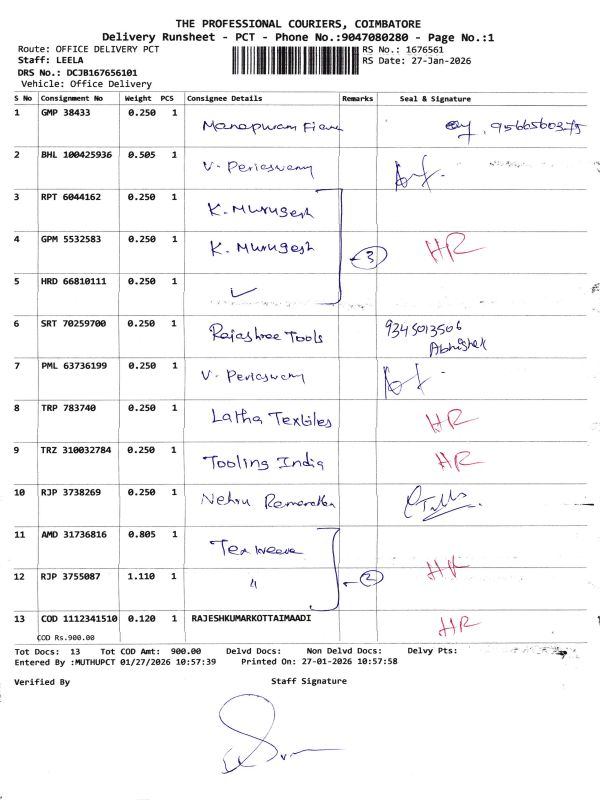 THE PROFESSIONAL COURIERS, COIMBATORE
Delivery Runsheet - PCT - Phone No.:9047080280 - Page No.:1
Route: OFFICE DELIVERY PCT RS No.: 1676561
Staff: LEELA RS Date: 27-Jan-2026
DRS No.: DCJB167656101
Vehicle: Office Delivery
S No Consignment No Weight PCS Consignee Details Remarks Seal & Signature
1 GMP 38433 0.250 1 9566560375
2 BHL 100425936 0.505 1 V. Periaswamy
3 RPT 6044162 0.250 1 K. Murugesh
4 GPM 5532583 0.250 1 K. Murugesh 3 HR
5 HRD 66810111 0.250 1
6 SRT 70259700 0.250 1 Rajashree Tools 9345013506
Abhishek
7 PML 63736199 0.250 1 V. Periaswamy
8 TRP 783740 0.250 1 Latha Textiles HR
9 TRZ 310032784 0.250 1 Tooling India HR
10 RJP 3738269 0.250 1 Nehru
11 AMD 31736816 0.805 1 Tex weave HR
12 RJP 3755087 1.110 1 〃 2
13 COD 1112341510 0.120 1 RAJESHKUMARKOTTAIMAADI HR
COD Rs.900.00
Tot Docs: 13 Tot COD Amt: 900.00 Delvd Docs: Non Delvd Docs: Delvy Pts:
Entered By :MUTHUPCT 01/27/2026 10:57:39 Printed On: 27-01-2026 10:57:58
Verified By Staff Signature